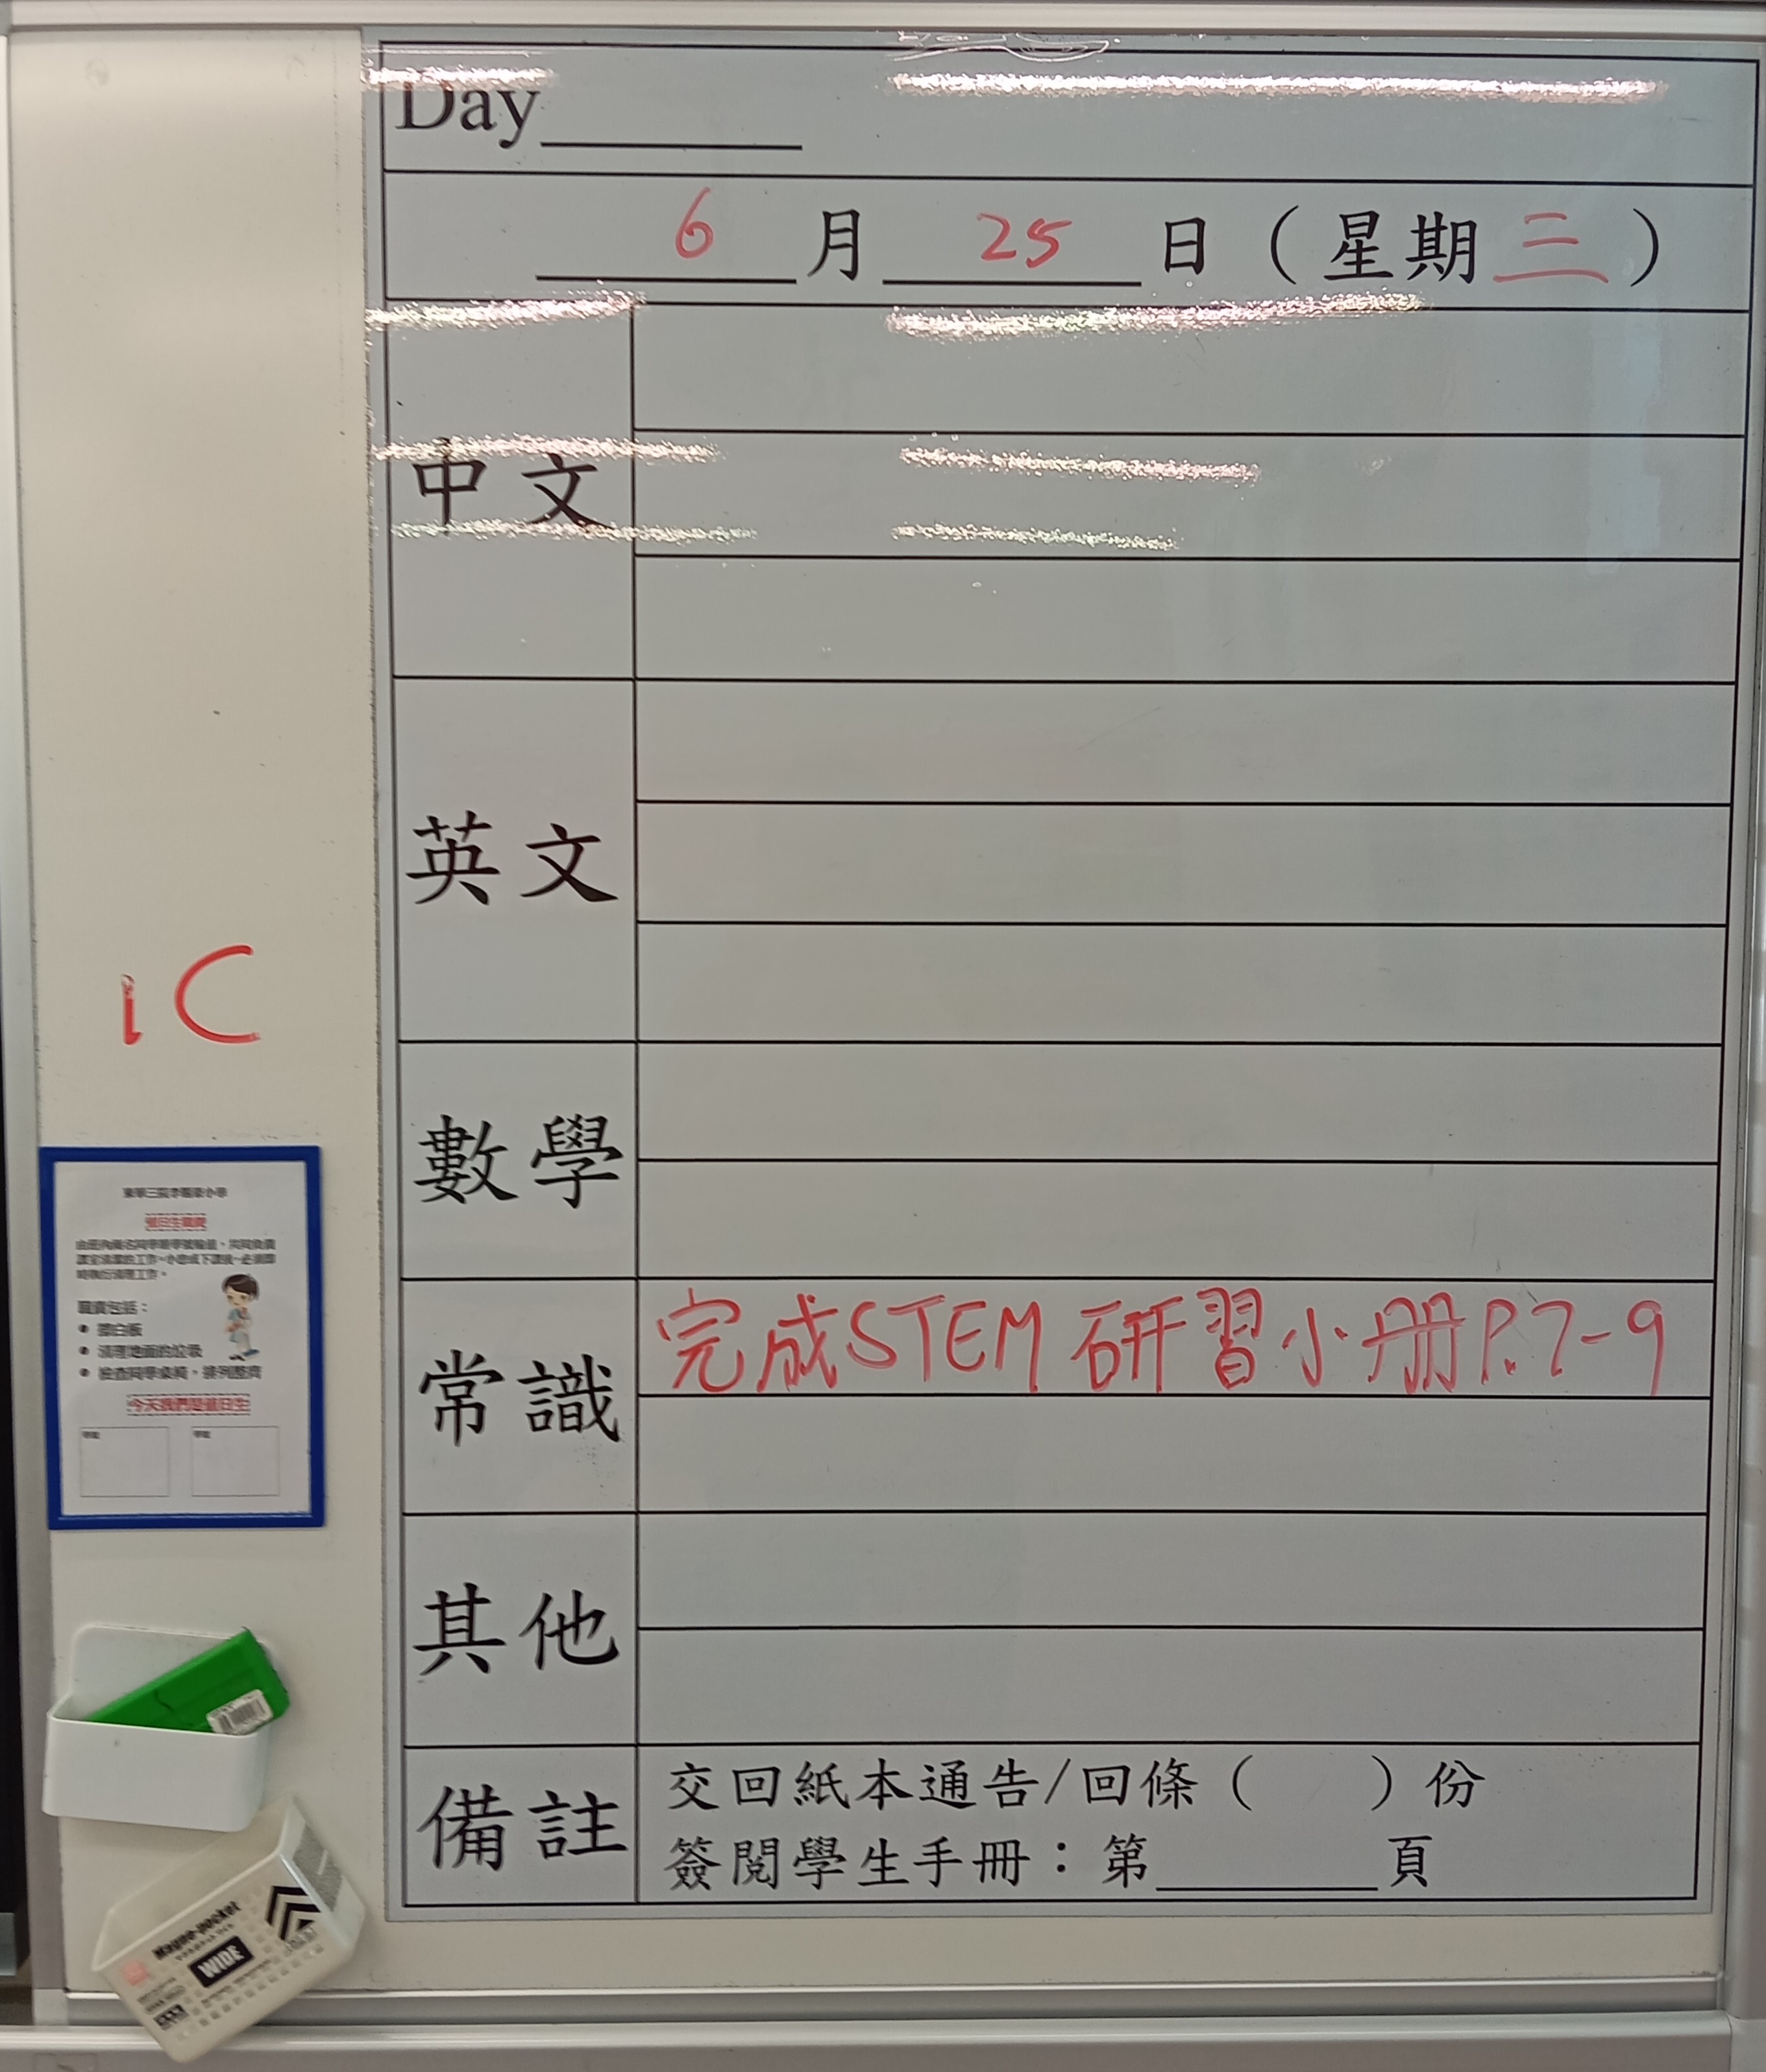 Day
6月25日（星期三）
中文
英文
數學
常識
完成STEM研習小册P.7-9
其他
備註
交回紙本通告/回條（ ）份
簽閱學生手冊：第 頁
1C
職責包括：
清理地面的垃圾
今天我們是值日生
Magne-pocket
WIDE